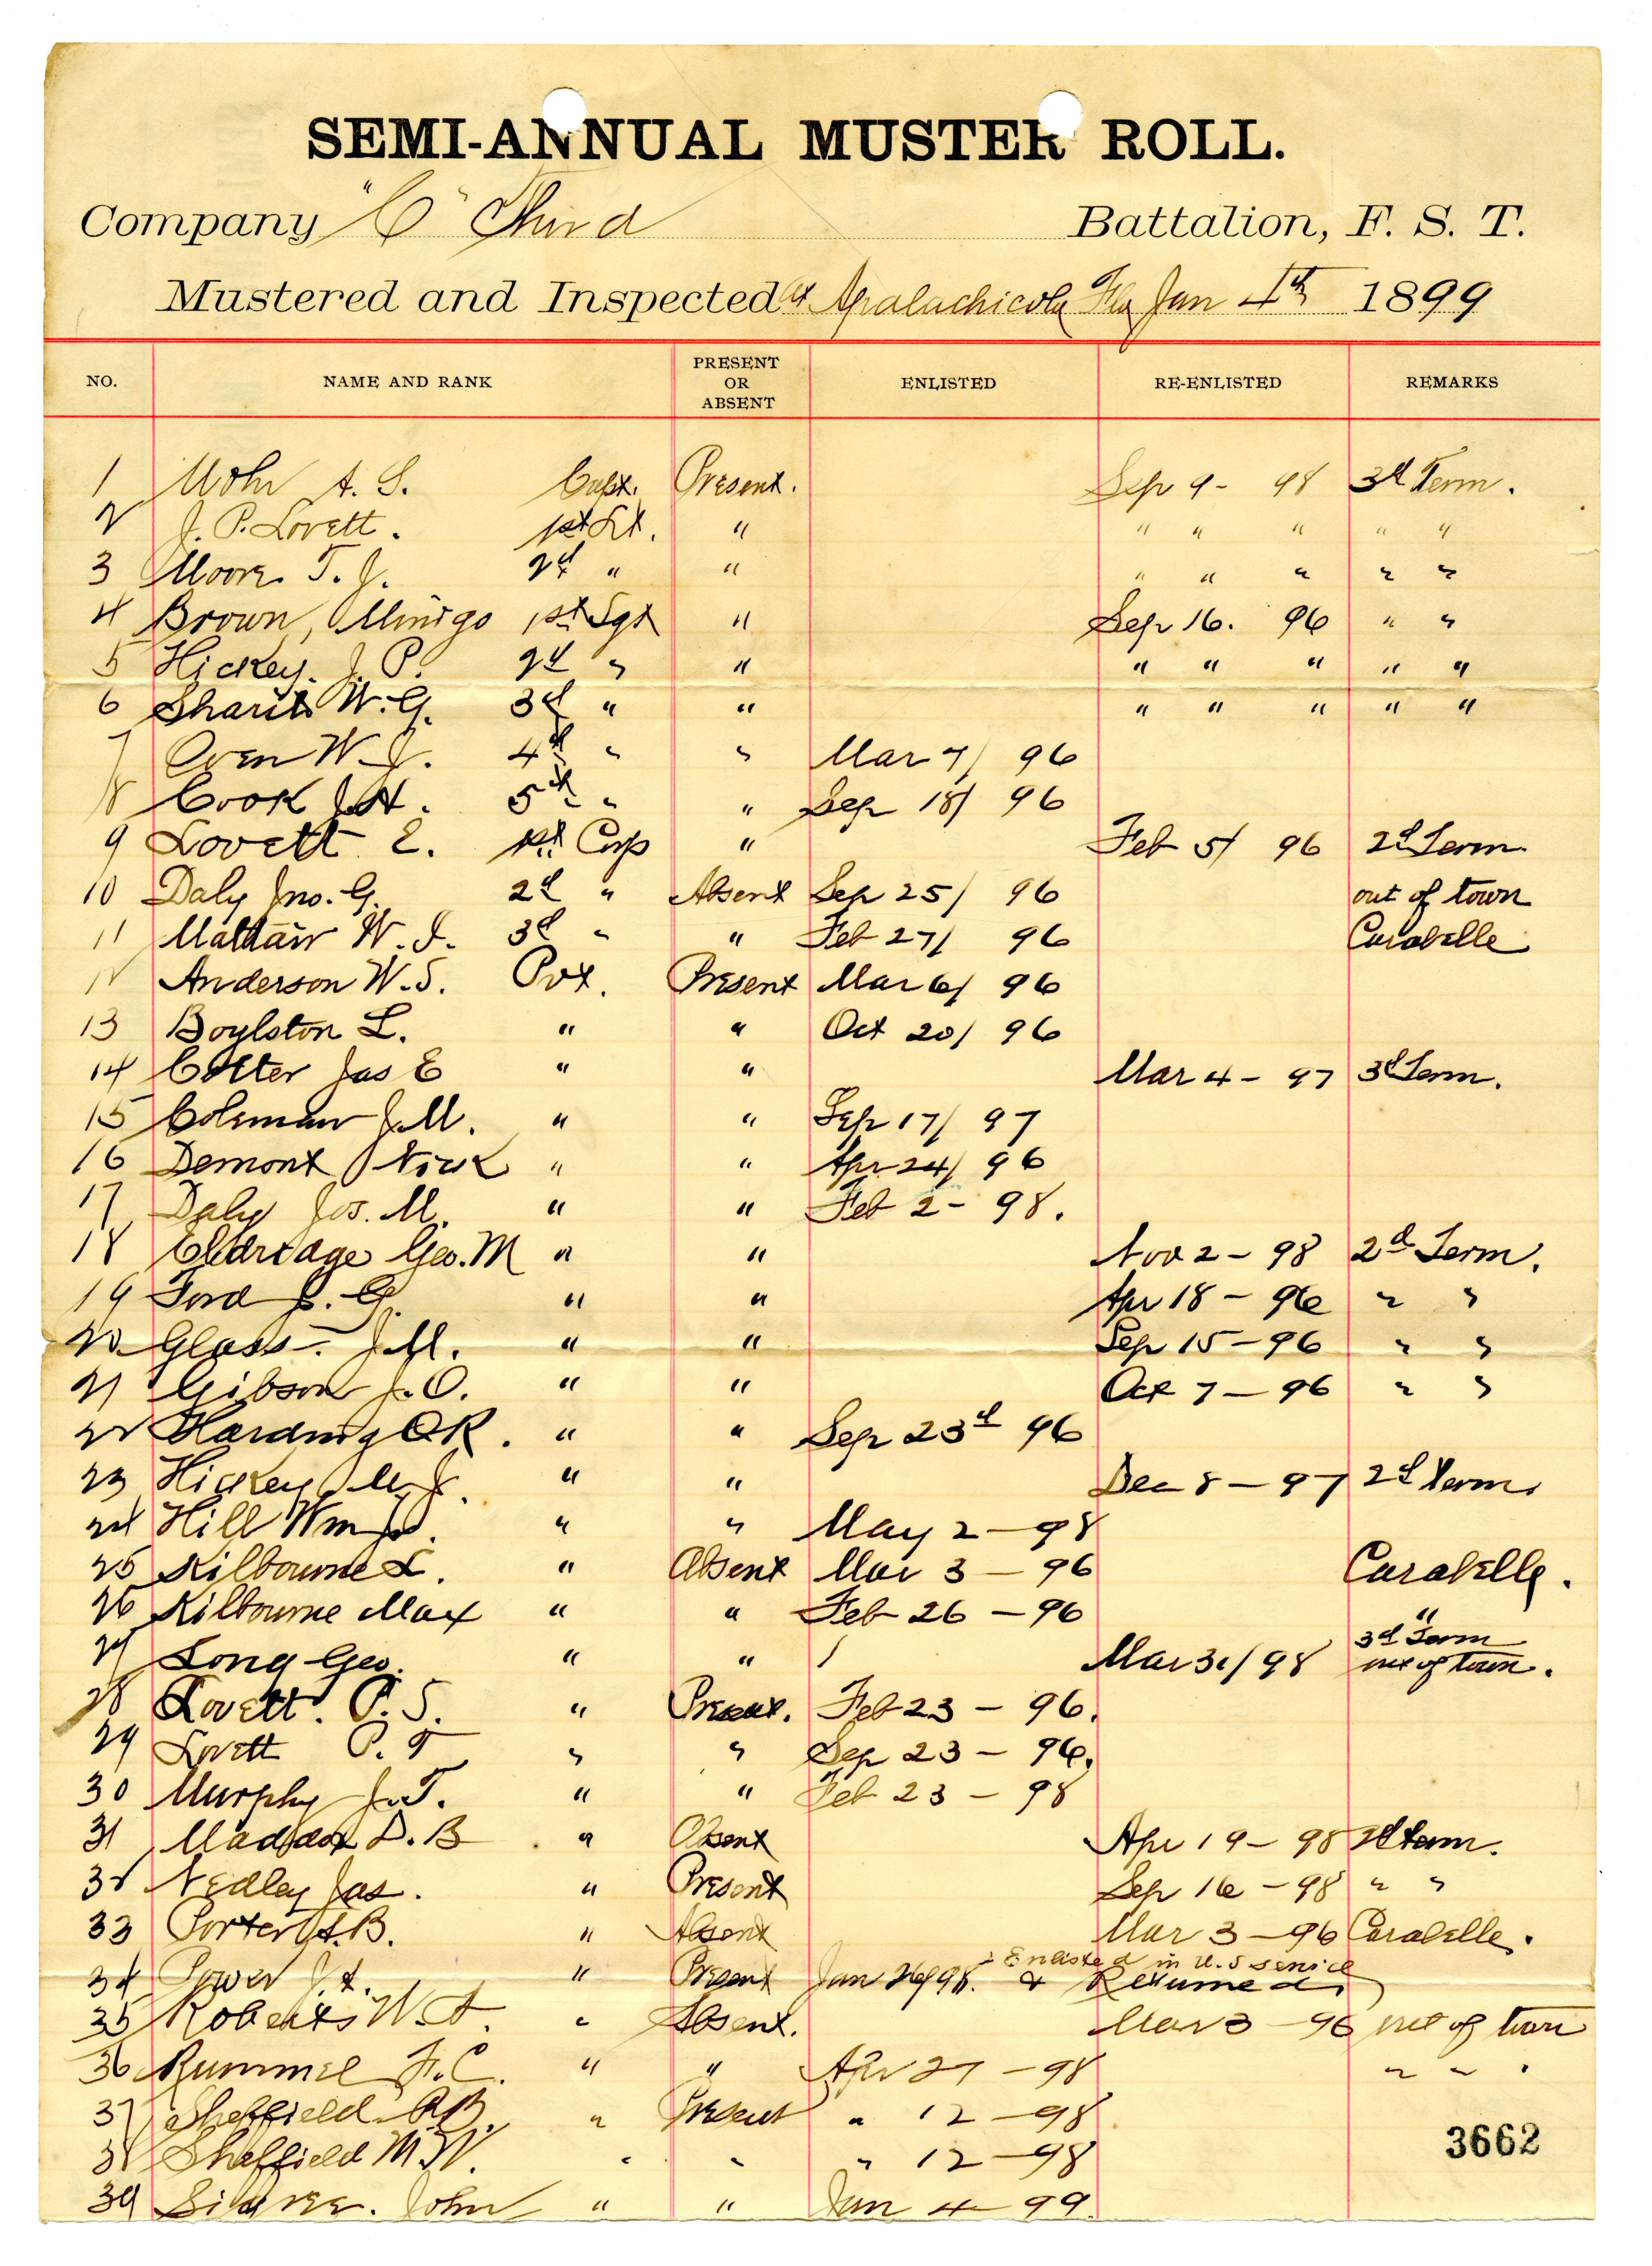 SEMI-ANNUAL MUSTER ROLL.
Company "C" Third Battalion, F. S. T.
Mustered and Inspected at Apalachicola Fla Jan 4th 1899
NO. NAME AND RANK PRESENT OR ABSENT ENLISTED RE-ENLISTED REMARKS
1 Mohr A. S. Capt. Present. Sep 9 - 98 3d Term.
2 J. P. Lovett. 1st Lt. " " " " " "
3 Moore T. J. 2d " " " " " " "
4 Brown, Mingo 1st Sgt " Sep 16. 96 " "
5 Hickey. J. P. 2d " " " " " " "
6 Sharit W. G. 3d " " " " " " "
7 Oven W. J. 4th " " Mar 7/ 96
8 Cook J. H. 5th " " Sep 18/ 96
9 Lovett E. 1st Corp " Feb 5/ 96 2d Term
10 Daly Jno. G. 2d " Absent Sep 25/ 96 out of town
11 Mattair W. I. 3d " " Feb 27/ 96 Carabelle
12 Anderson W. S. Pvt. Present Mar 6/ 96
13 Boylston L. " " Oct 20/ 96
14 Cotter Jas E " " Mar 4 - 97 3d Term.
15 Coleman J. M. " " Sep 17/ 97
16 Demont Nick " " Apr 24/ 96
17 Daly Jos. M. " " Feb 2 - 98.
18 Eldridage Geo. M " " Nov 2 - 98 2d Term.
19 Ford G. " " Apr 18 - 96 " "
20 Glass. J. M. " " Sep 15 - 96 " "
21 Gibson J. O. " " Oct 7 - 96 " "
22 Harding O R. " " Sep 23d 96
23 Hickey M. J. " " Dec 8 - 97 2d Term.
24 Hill Wm " " May 2 - 98
25 Kilbourne L. " Absent Mar 3 - 96 Carabelle.
26 Kilbourne Max " " Feb 26 - 96 "
27 Long Geo. " " / Mar 31/98 3d Term out of town.
28 Lovett. P. S. " Present. Feb 23 - 96.
29 Lovett P. T " " Sep 23 - 96.
30 Murphy J. T. " " Feb 23 - 98
31 Maddox D. B " Absent Apr 19 - 98 2d term.
32 Nedley Jas. " Present Sep 16 - 98 " "
33 Porter A. B. " Absent Mar 3 - 96 Carabelle.
34 Power J. A. " Present Jan 98. - Enlisted in U. S service & Returned
35 Roberts W. A. " Absent. Mar 3 - 96 out of town
36 Rummel F. C. " " Apr 27 - 98 " " "
37 Sheffield R. B. " Present " 12 - 98
38 Sheffield M. W. " " " 12 - 98
39 John " " Jan 4 - 99.
3662